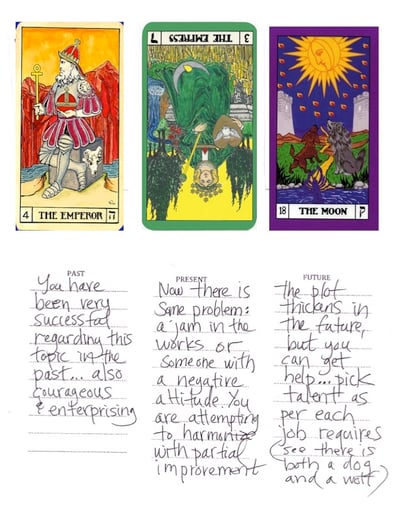 4
THE EMPEROR
3
THE EMPRESS
ד
18
THE MOON
ק
PAST
You have
been very
successful
regarding this
topic in the
past... also
courageous
& enterprising
PRESENT
Now there is
some problem:
a jam in the
works or
someone with
a negative
attitude. You
are attempting
to harmonize
with partial
improvement
FUTURE
the plot
thickens in
the future,
but you
can get
help... pick
talent as
per each
job requires
(see there is
both a dog
and a wolf)